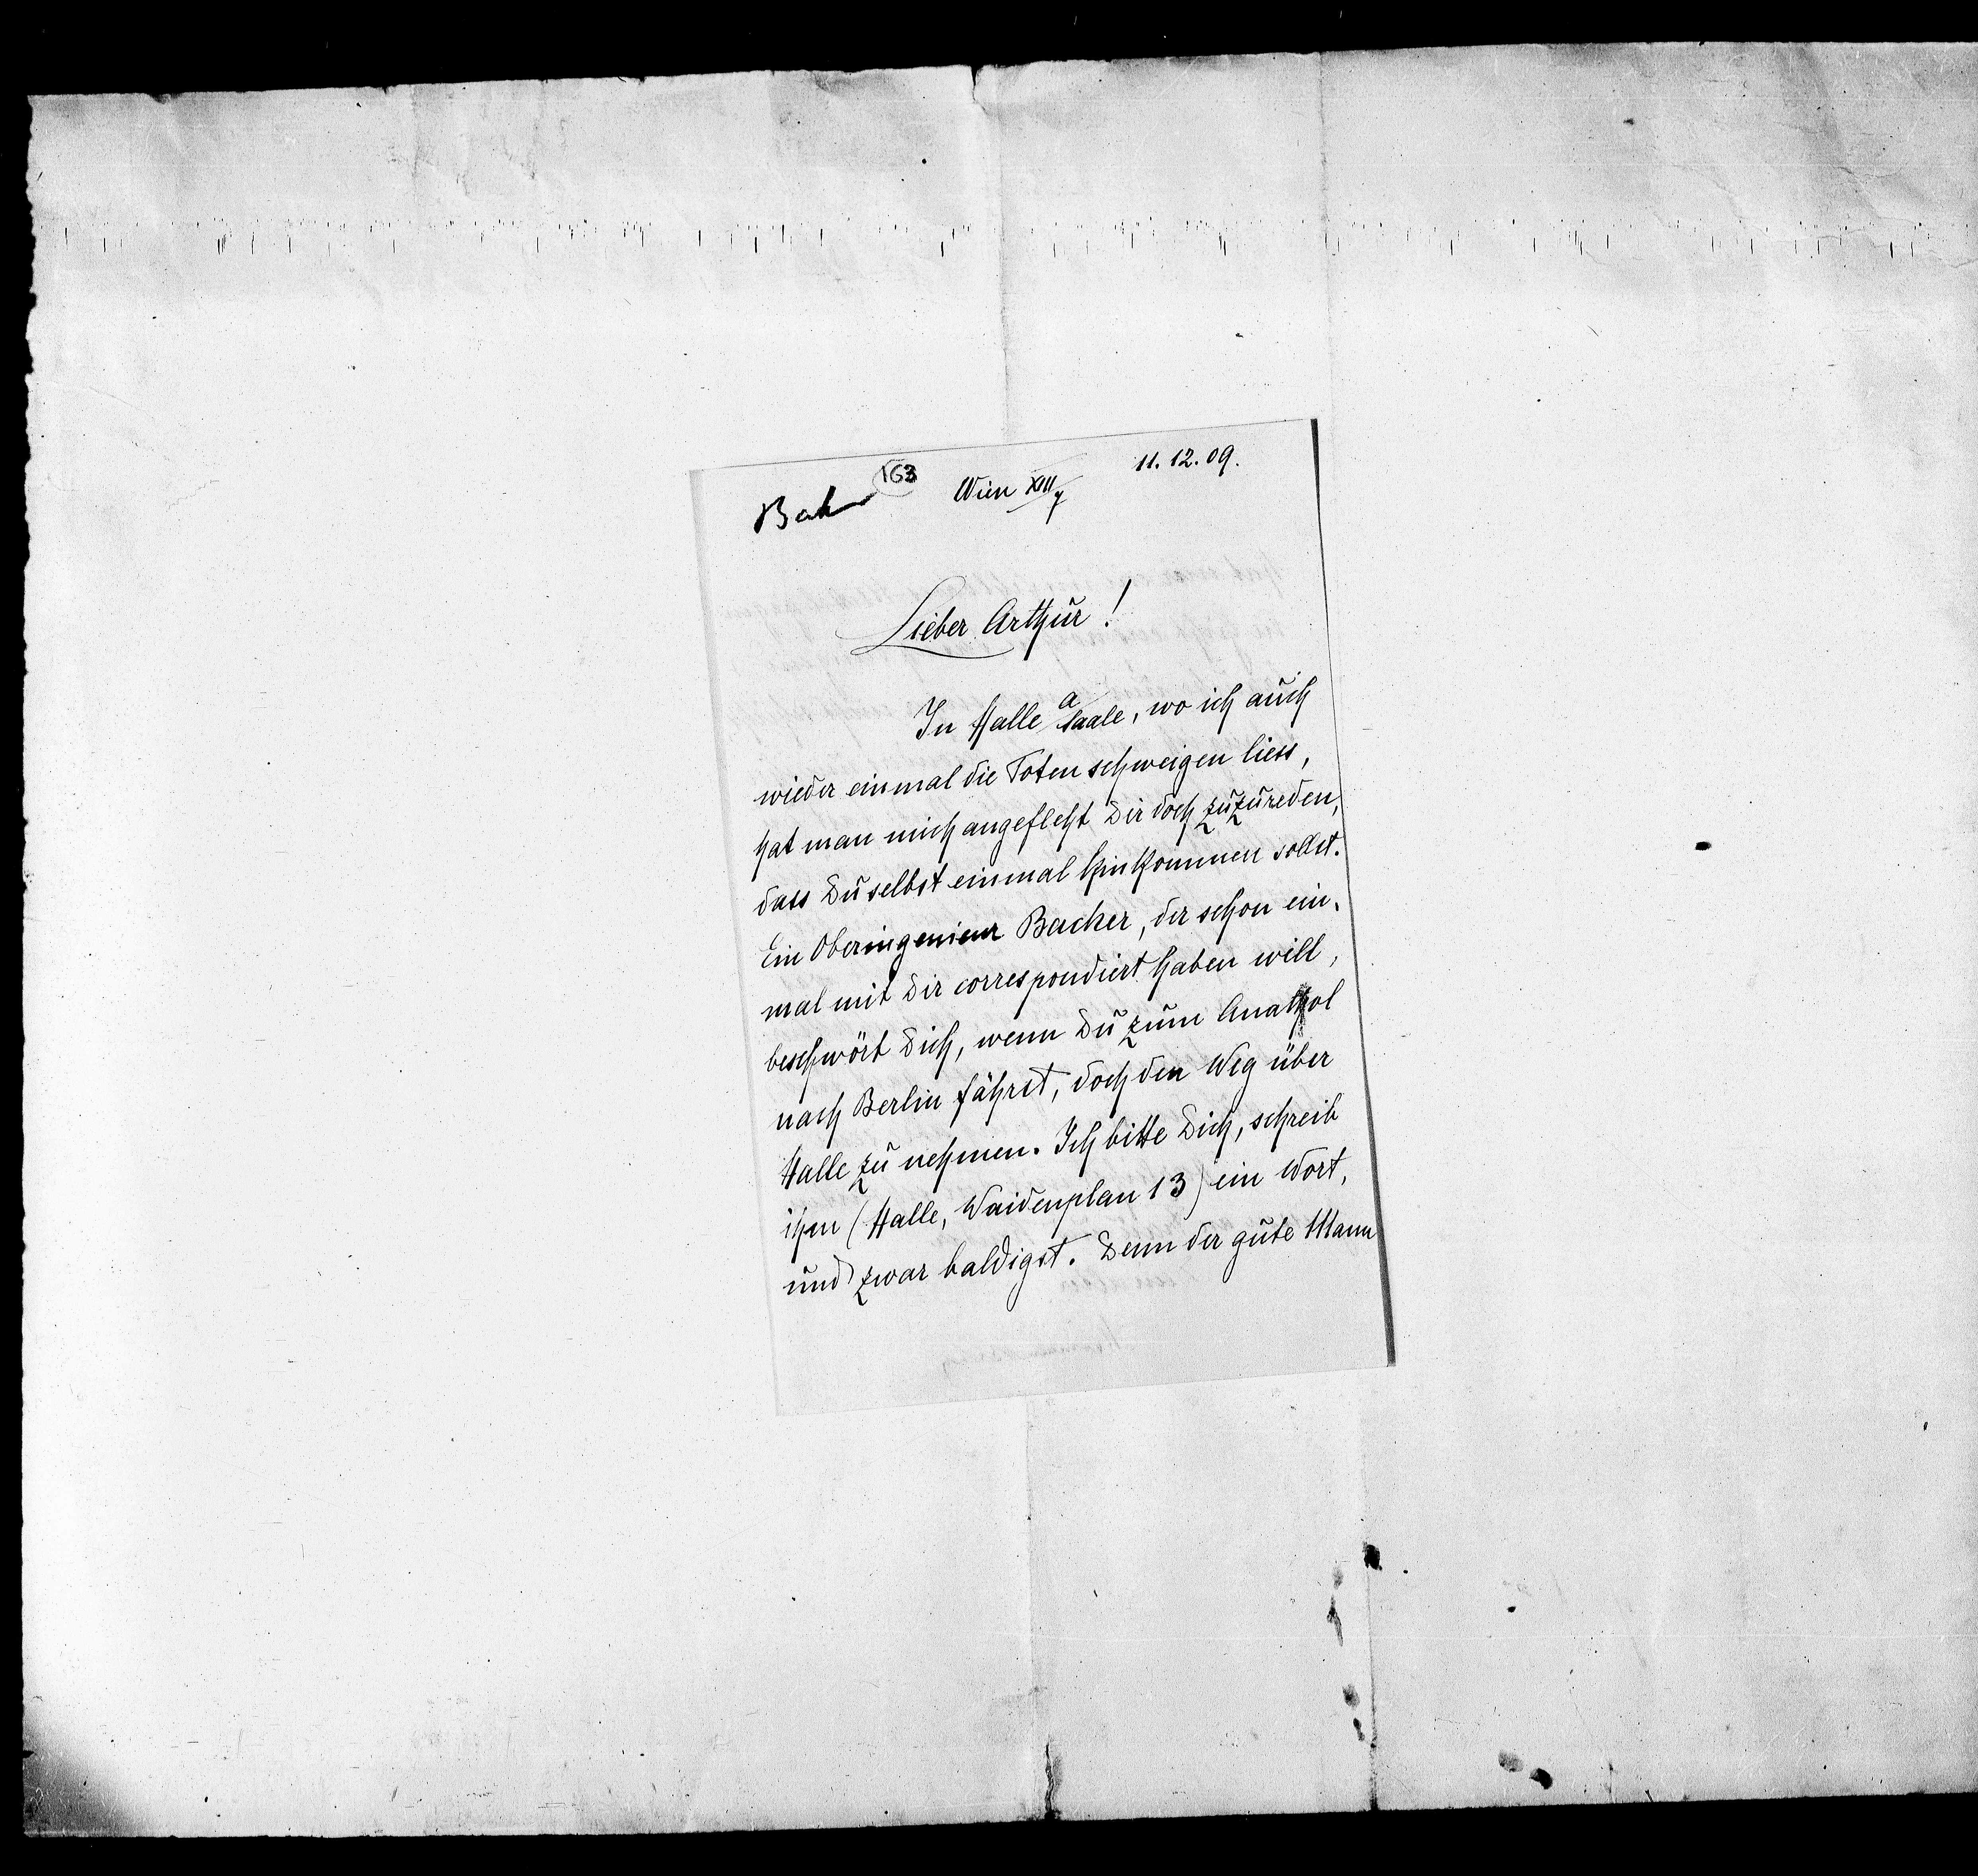 163
11. 12. 09.
Bahr
Wien XIII/7
Lieber Arthur!
In Halle a/Saale, wo ich auch
wieder einmal die Toten schweigen liess,
hat man mich angefleht Dir doch zuzureden,
dass Du selbst einmal hinkommen sollst.
Ein Oberingenieur Backer, der schon ein-
mal mit Dir correspondiert haben will,
beschwört Dich, wenn Du zum Anathol
nach Berlin fährst, doch den Weg über
Halle zu nehmen. Ich bitte Dich, schreib
ihm (Halle, Waidenplan 13) ein Wort,
und zwar baldigst. Denn der gute Mann